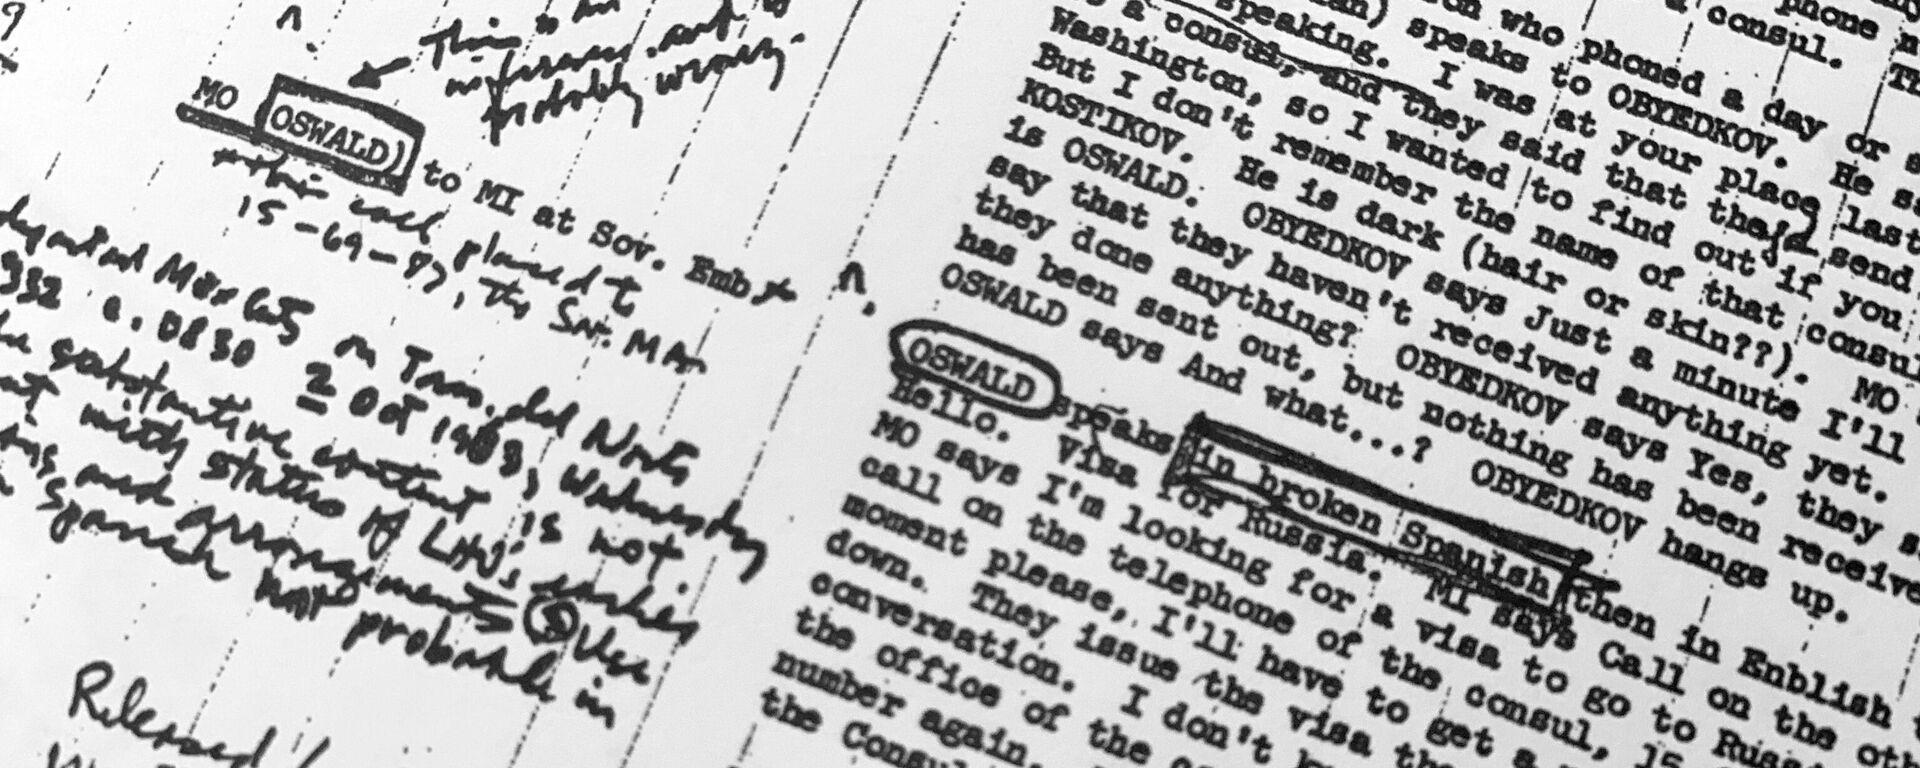 9
This is an
inference and is
probably wrong.
MO (OSWALD) to MI at Sov. Emb
this call placed to
15-69-87, the Sov. MA
on Tran. dtd
332 c. 0830 2 Oct 1963, Wednesday
substantive content is not
with status of LHO's earlier
and arrangements Use
Spanish not probable in
Released
phone
a consul. Th
on who phoned a day or
an) speaks to OBYEDKOV. He sa
speaking. I was at your place last
y a consul, and they said that they'd send
Washington, so I wanted to find out if you
But I don't remember the name of that consul
KOSTIKOV. He is dark (hair or skin??). MO
is OSWALD. OBYEDKOV says Just a minute I'll
say that they haven't received anything yet.
they done anything? OBYEDKOV says Yes, they s
has been sent out, but nothing has been receive
OSWALD says And what...? OBYEDKOV hangs up.
OSWALD speaks in broken Spanish then in Enblish
Hello. Visa for Russia. MI says Call on the oth
MO says I'm looking for a visa to go to Russ
call on the telephone of the consul, 15
moment please, I'll have to get a
down. They issue the visa the
conversation. I don't k
the office of the
number again.
the Consul